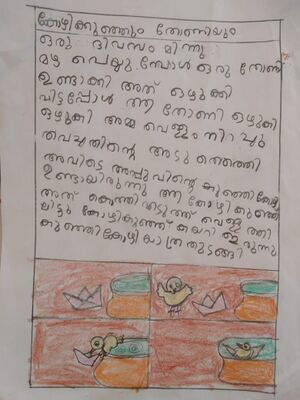 കോഴിക്കുഞ്ഞും തോണിയും
ഒരു ദിവസം മിന്നു
മഴ പെയ്യുമ്പോൾ ഒരു തോണി
ഉണ്ടാക്കി അത് ഒഴുക്കി
വിട്ടപ്പോൾ ആ തോണി ഒഴുകി
ഒഴുകി അമ്മ വെള്ളം നിറച്ചു
വെച്ചതിന്റെ അടുത്തെത്തി
അവിടെ അപ്പുവിന്റെ കുഞ്ഞികോഴി
ഉണ്ടായിരുന്നു ആ കോഴിക്കുഞ്ഞ്
അത് കൊത്തി എടുത്ത് വെള്ളത്തി
ലിട്ടു കോഴികുഞ്ഞ് കയറി ഇരുന്നു
കുഞ്ഞികോഴി യാത്ര തുടങ്ങി